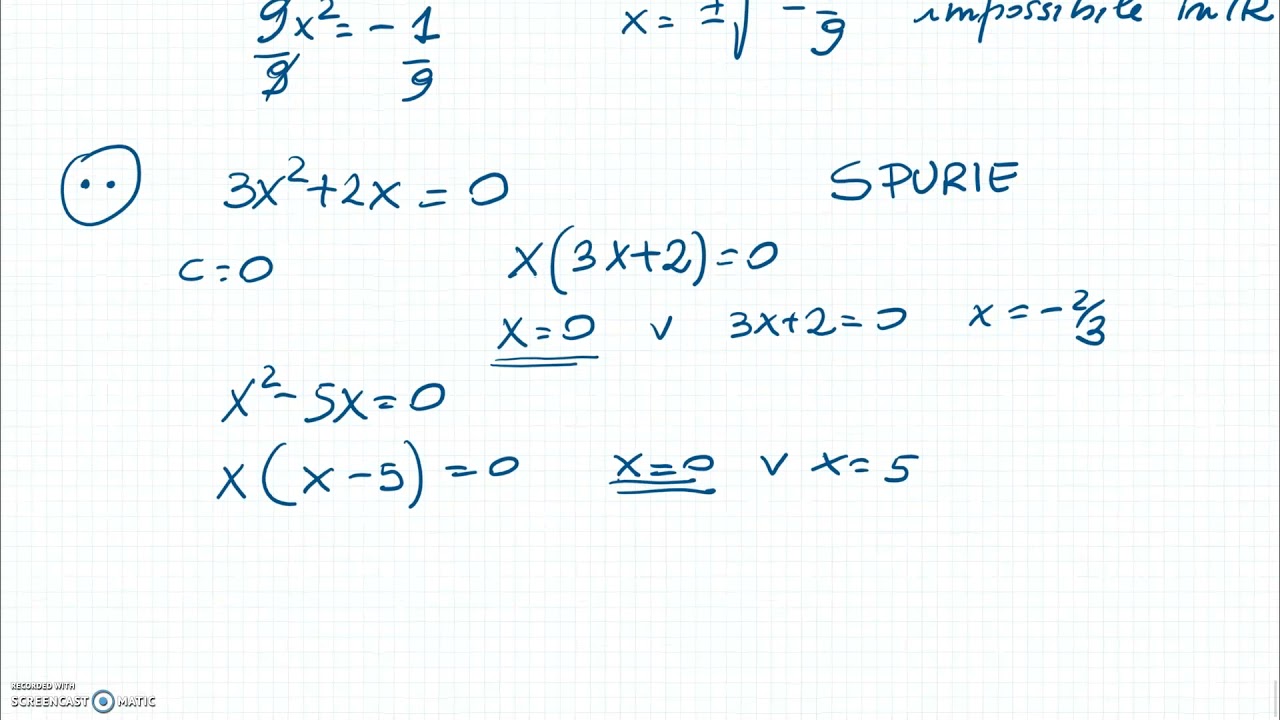 9x² = - 1 x = ±√ - impossibile in IR
9 9 9
3x² + 2x = 0 SPURIE
c = 0 x(3x+2) = 0
x = 0 v 3x+2 = 0 x = -2/3
x² - 5x = 0
x(x - 5) = 0 x = 0 v x = 5
RECORDED WITH
SCREENCAST MATIC